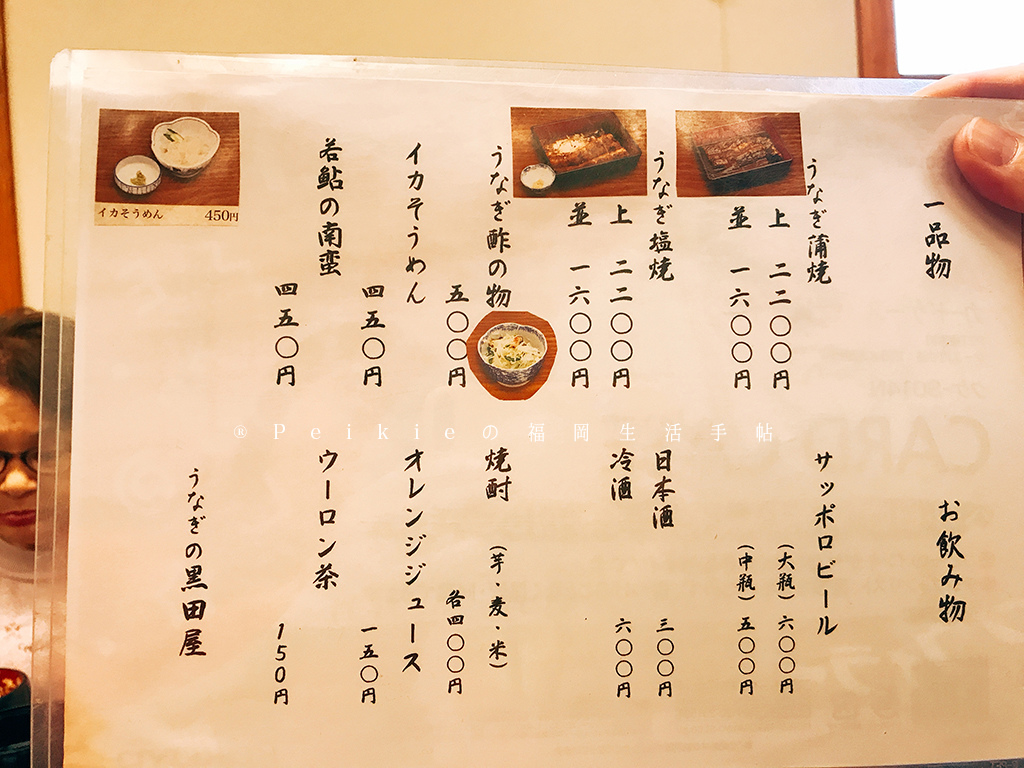 一品物
うなぎ蒲焼
上 二二〇〇円
並 一六〇〇円
うなぎ塩焼
上 二二〇〇円
並 一六〇〇円
うなぎ酢の物
五〇〇円
イカそうめん
四五〇円
若鮎の南蛮
四五〇円
イカそうめん 450円
®Peikieの福岡生活手帖
お飲み物
サッポロビール
(大瓶) 六〇〇円
(中瓶) 五〇〇円
日本酒 三〇〇円
冷酒 六〇〇円
焼酎 (芋・麦・米)
各四〇〇円
オレンジジュース
一五〇円
ウーロン茶
150円
うなぎの黒田屋